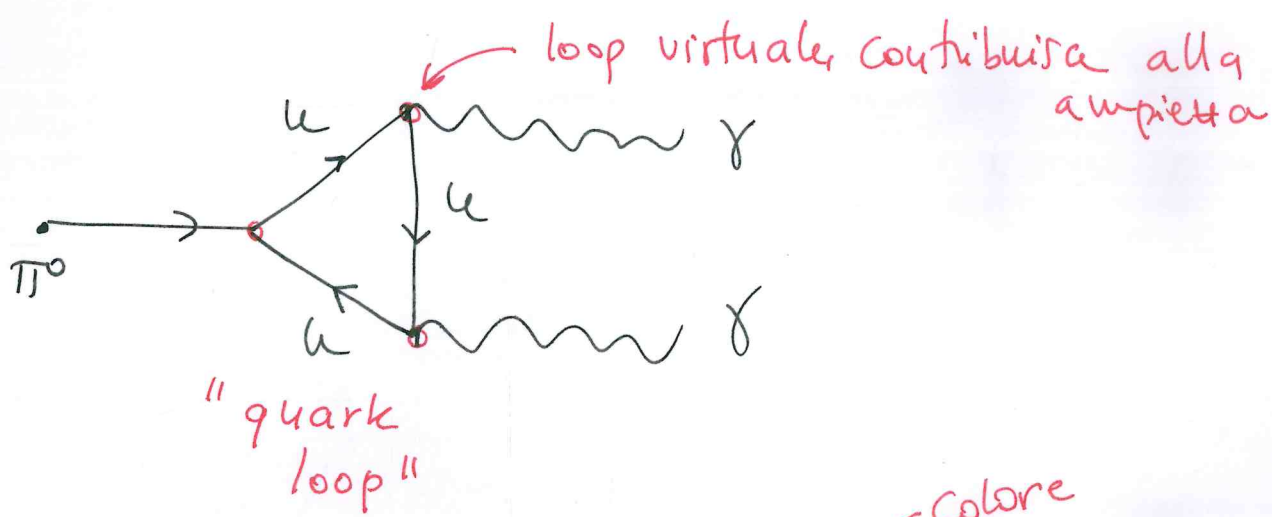 loop virtuale, contribuisce alla
ampiezza
u
γ
u
π⁰
u
γ
"quark
loop"
colore